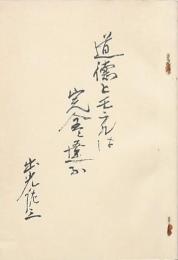 道徳とモラルは
完全に違ふ
出光佐三